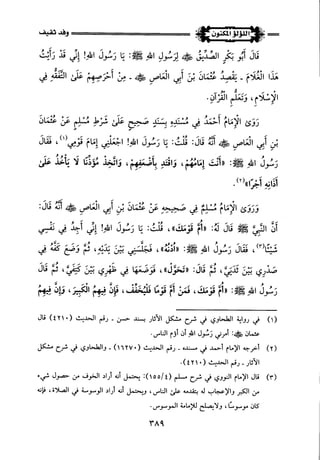 وفد ثقيف اللؤلؤ المكنون
قال أبو بكر الصديق ﷺ لرسول الله ﷺ: يا رسول الله! إني قد رأيت
هذا الغلام - يقصد عثمان بن أبي العاص ﷺ - من أحرصهم على التفقه في
الإسلام، وتعلم القرآن.
روى الإمام أحمد في مسنده بسند صحيح على شرط مسلم عن عثمان
بن أبي العاص ﷺ قال: قلت: يا رسول الله! اجعلني إمام قومي(١)، فقال
رسول الله ﷺ: «أنت إمامهم، واقتد بأضعفهم، واتخذ مؤذنا لا يأخذ على
أذانه أجرا»(٢).
وروى الإمام مسلم في صحيحه عن عثمان بن أبي العاص ﷺ قال:
أن النبي ﷺ قال له: «أم قومك»، قلت: يا رسول الله! إني أجد في نفسي
شيئا(٣)، فقال رسول الله ﷺ: «ادنه»، فجلسني بين يديه، ثم وضع كفه في
صدري بين ثديي، ثم قال: «تحول»، فوضعها في ظهري بين كتفي، ثم قال
رسول الله ﷺ: «أم قومك، فمن أم قوما فليخفف، فإن فيهم الكبير، وإن فيهم
(١) في رواية الطحاوي في شرح مشكل الآثار بسند حسن - رقم الحديث (٤٢١٠) قال
عثمان ﷺ: أمرني رسول الله أن أؤم الناس.
(٢) أخرجه الإمام أحمد في مسنده - رقم الحديث (١٦٢٧٠) - والطحاوي في شرح مشكل
الآثار - رقم الحديث (٤٢١٠).
(٣) قال الإمام النووي في شرح مسلم (١٥٥/٤): يحتمل أنه أراد الخوف من حصول شيء
من الكبر والإعجاب له بتقدمه على الناس، ويحتمل أنه أراد الوسوسة في الصلاة، فإنه
كان موسوسا، ولا يصلح للإمامة الموسوس.
٣٨٩